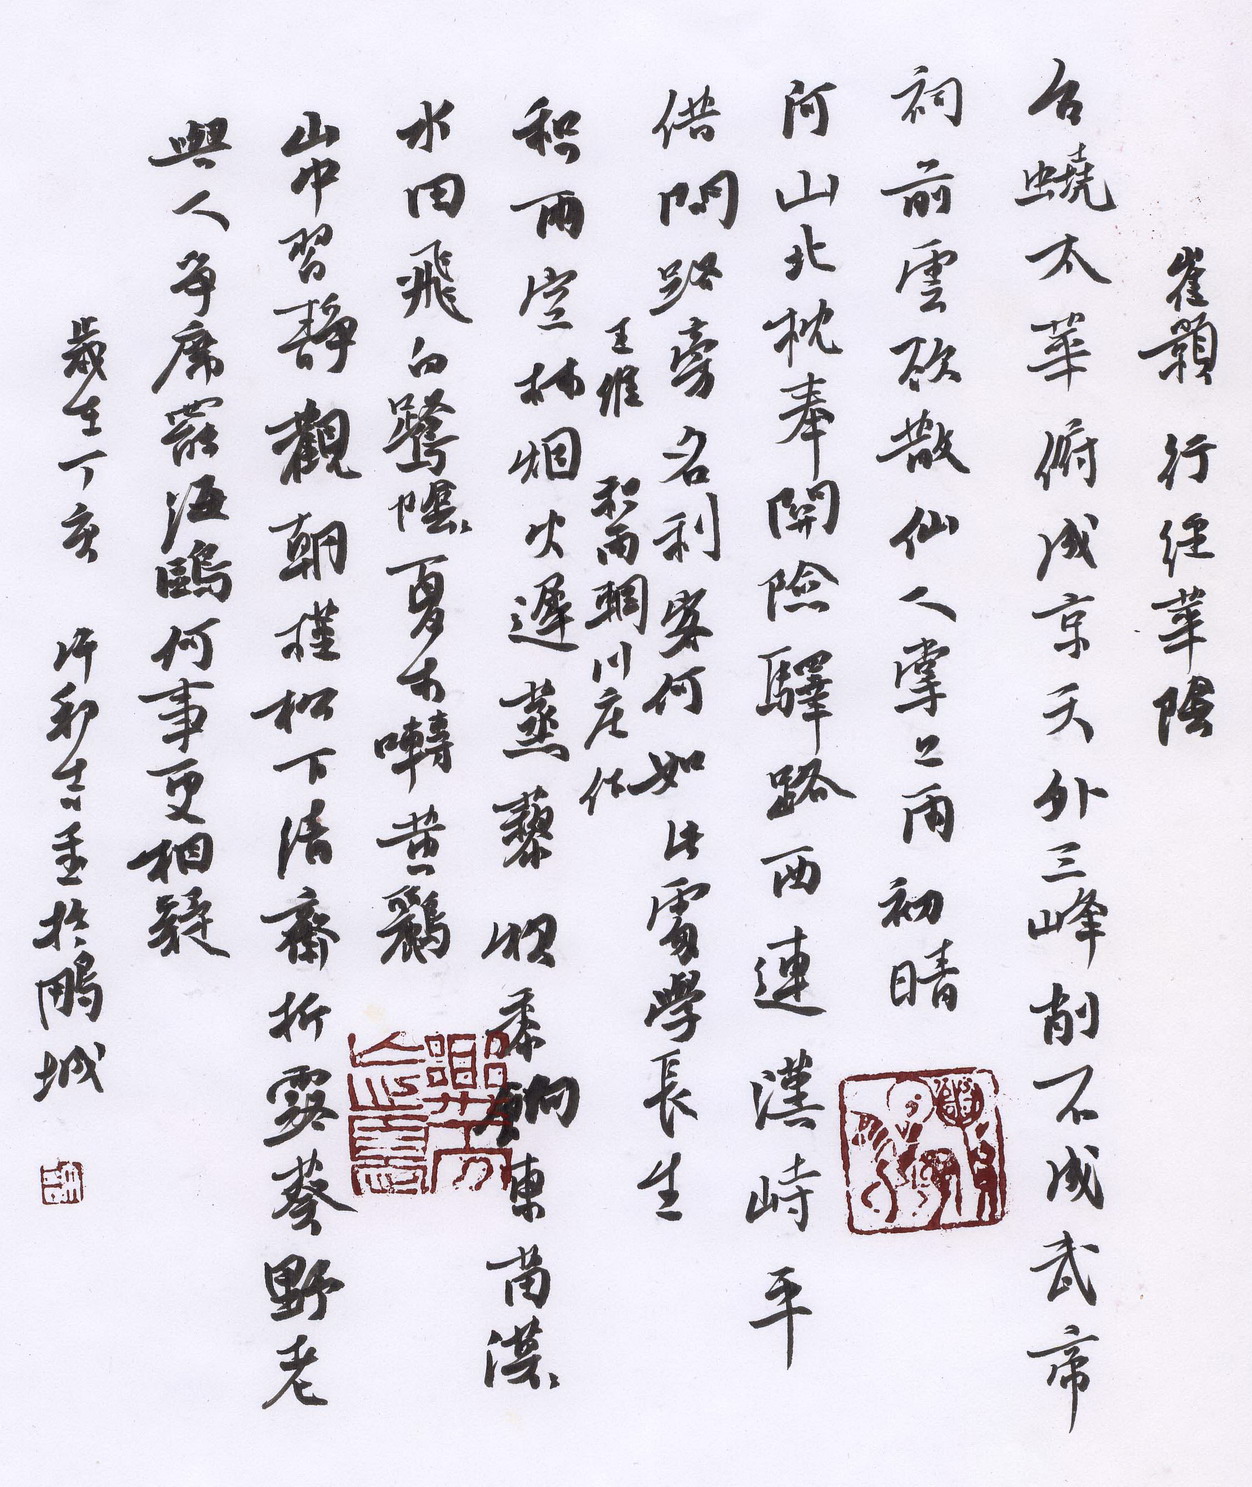 崔顥 行經華陰
台蟯太華俯咸京天外三峰削不成武帝
祠前雲欲散仙人掌上雨初晴
河山北枕秦關險驛路西連漢峙平
借問路旁名利客何如此處學長生
王維 积雨輞川庄作
积雨空林烟火遲蒸藜炊黍餉東菑漠、
水田飛白鷺陰、夏木囀黄鸝
山中習靜觀朝槿松下清齋折露葵野老
與人争席罷海鷗何事更相疑
歲在丁亥 許 書於鵬城